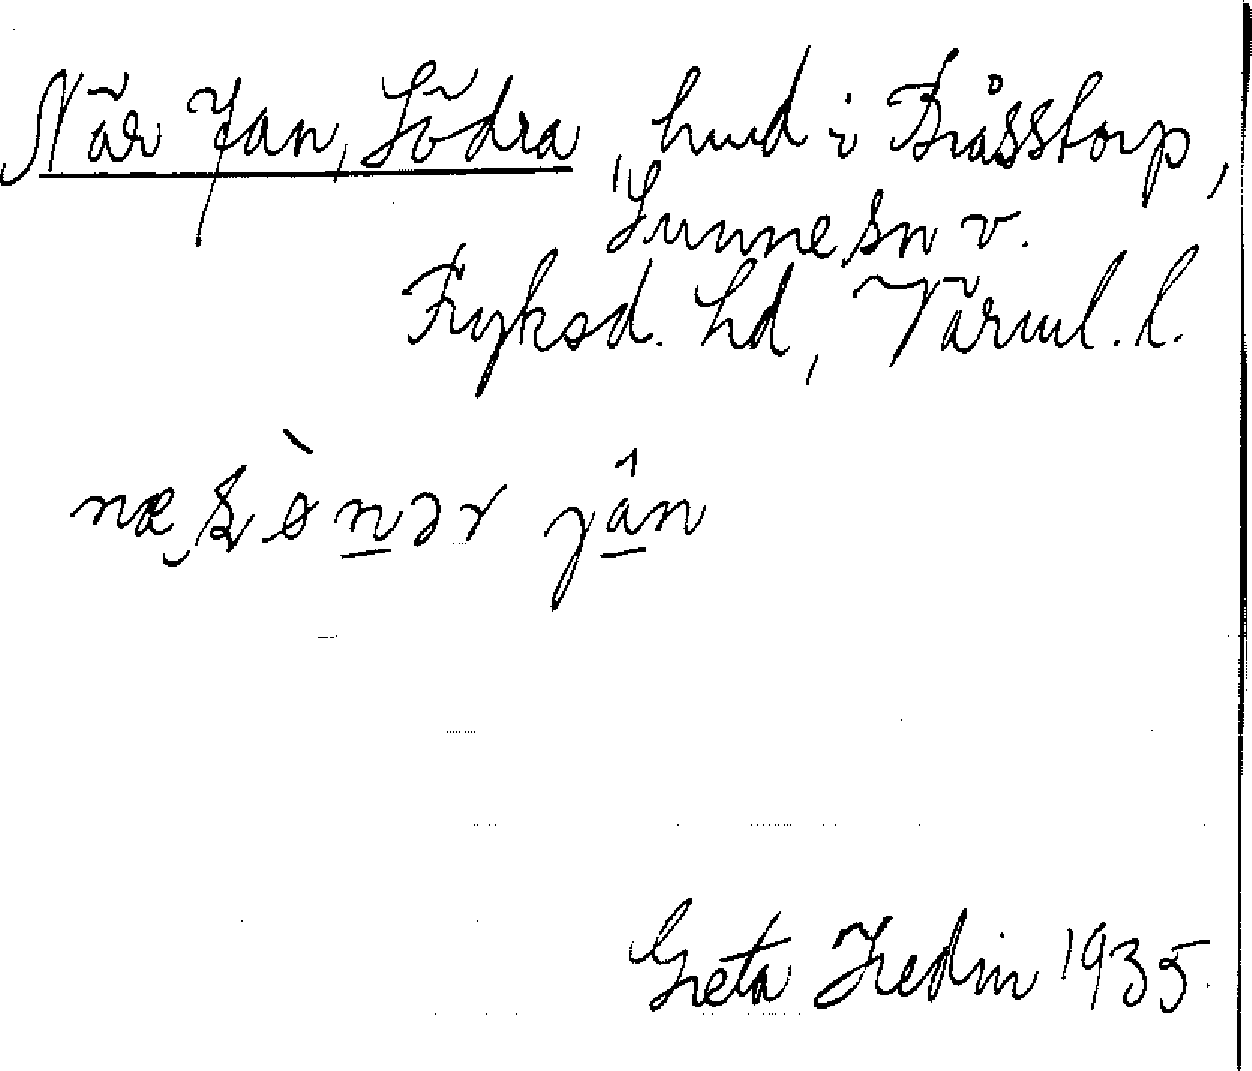 När Jan, Södra, hmd i Bråsstorp,
Sunne sn v.
Fryksd. hd, Värml. l.
Greta Hedin 1935.